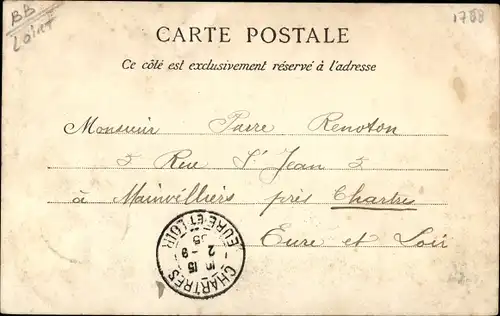 BB
LOIRT
1788
CARTE POSTALE
Ce côté est exclusivement réservé à l'adresse
Monsieur Pavre Renoton
5 Rue St Jean 5
à Mainvilliers près Chartres
Eure et Loir
CHARTRES
EURE ET LOIR
10 15
2 - 9
05